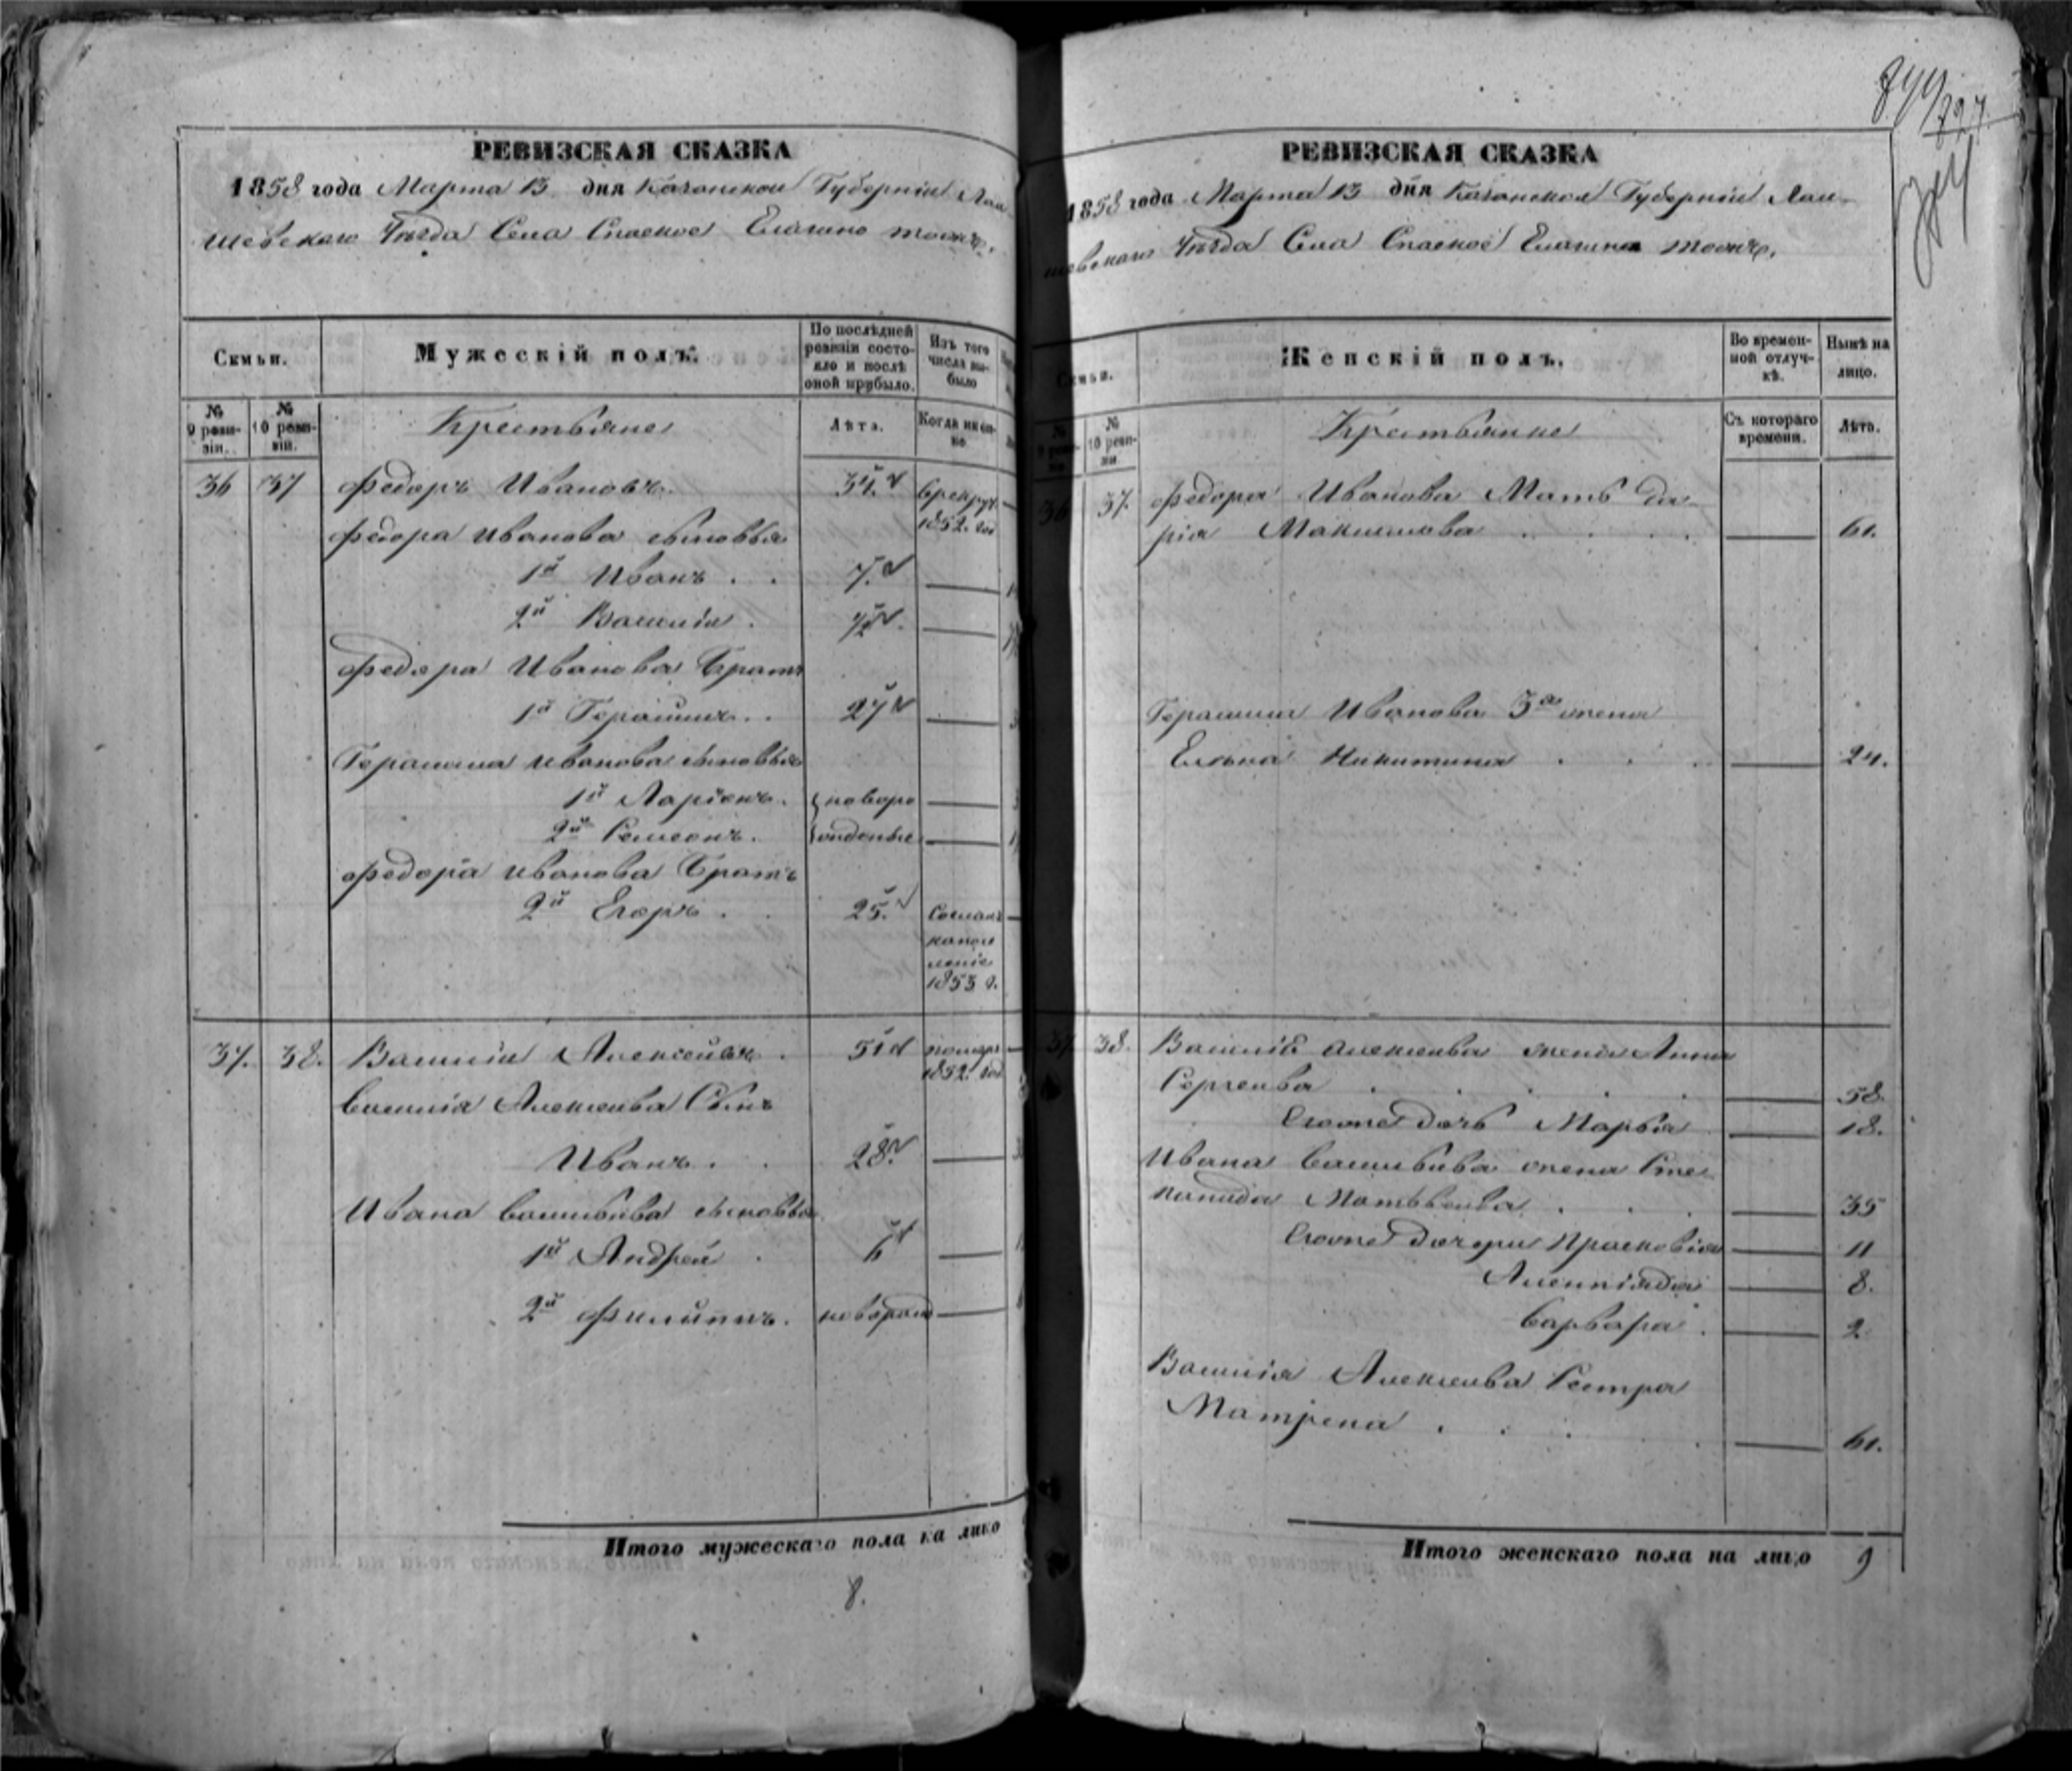 РЕВИЗСКАЯ СКАЗКА
1858 года Марта 13 дня Казанской Губерніи Лаи-
шевскаго Уѣзда Села Спаское Елагино тожъ.
Семьи.
Мужескій полъ.
По послѣдней ревизіи состояло и послѣ оной прибыло.
Изъ того числа выбыло
№ 9 ревизіи.
№ 10 ревизіи.
Крестьяне
Лѣта.
Когда именно
36 37 Федоръ Ивановъ. 34. в рекрут. 1852. год
Федора Иванова сыновья
1й Иванъ . . 7.
2й Василій .
Федора Иванова Братъ
1й Герасимъ. . 27
Герасима Иванова сыновья
1й Ларіонъ. новоро
2й Семеонъ. жденные
Федора Иванова Братъ
2й Егоръ . 25. Сослан на поселеніе 1853 г.
37. 38. Василій Алексѣевъ . 51 помер 1852. год
Василія Алексеева Сынъ
Иванъ . . 28.
Ивана Васильева сыновья
1й Андрей . 6
2й Филиппъ.новорожд
Итого мужескаго пола на лицо
8.
844/727.
РЕВИЗСКАЯ СКАЗКА
1858 года Марта 13 дня Казанской Губерніи Лаи-
шевскаго Уѣзда Села Спаское Елагино тожъ.
Семьи.
Женскій полъ.
Во временной отлучкѣ.
Нынѣ на лицо.
№ 9 ревизіи
№ 10 ревизіи
Крестьянке
Съ котораго времени.
Лѣта.
36 37. Федора Иванова Мать Да-
рія Максимова . . . . 61.
Герасима Иванова 3я жена
Елена Никитина . . . 24.
37. 38. Василія Алексеева жена Анна
Сергеева . . . . . 58.
Егоже дочь Марья 18.
Ивана Васильева жена Сте
панида Матвеева . . . 35
Егоже дочери Прасковія 11
8.
Варвара . 2
Василія Алексеева Сестра
Матрена . . . . 61.
Итого женскаго пола на лицо 9